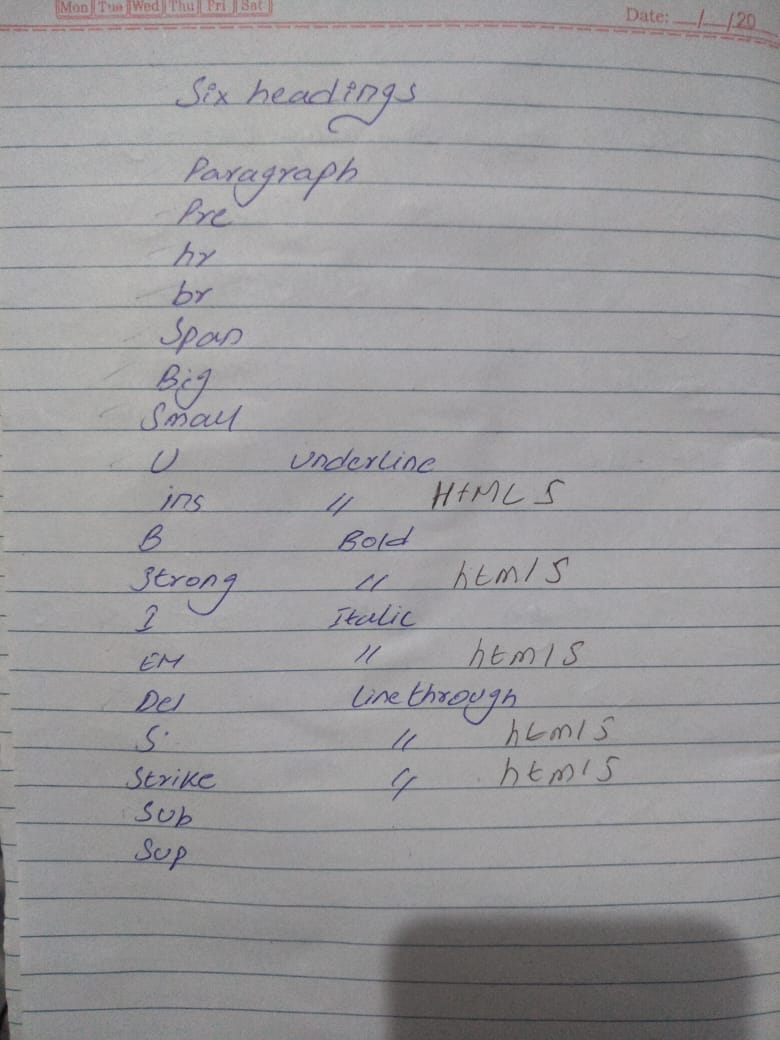 Mon Tue Wed Thu Fri Sat
Date: __/__/20
Six headings
Paragraph
Pre
hr
br
Span
Big
Small
U underline
ins " HTML 5
B Bold
Strong " html 5
I Italic
EM " html 5
Del Line through
S " html 5
Strike " html 5
Sub
Sup